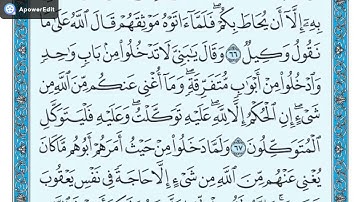 ApowerEdit
بِهِۦٓ إِلَّآ أَن يُحَاطَ بِكُمْ ۖ فَلَمَّآ ءَاتَوْهُ مَوْثِقَهُمْ قَالَ ٱللَّهُ عَلَىٰ مَا
نَقُولُ وَكِيلٌ ٦٦ وَقَالَ يَـٰبَنِىَّ لَا تَدْخُلُوا۟ مِنۢ بَابٍ وَٰحِدٍ
وَٱدْخُلُوا۟ مِنْ أَبْوَٰبٍ مُّتَفَرِّقَةٍ ۖ وَمَآ أُغْنِى عَنكُم مِّنَ ٱللَّهِ مِن
شَىْءٍ ۖ إِنِ ٱلْحُكْمُ إِلَّا لِلَّهِ ۖ عَلَيْهِ تَوَكَّلْتُ ۖ وَعَلَيْهِ فَلْيَتَوَكَّلِ
ٱلْمُتَوَكِّلُونَ ٦٧ وَلَمَّا دَخَلُوا۟ مِنْ حَيْثُ أَمَرَهُمْ أَبُوهُم مَّا كَانَ
يُغْنِى عَنْهُم مِّنَ ٱللَّهِ مِن شَىْءٍ إِلَّا حَاجَةً فِى نَفْسِ يَعْقُوبَ